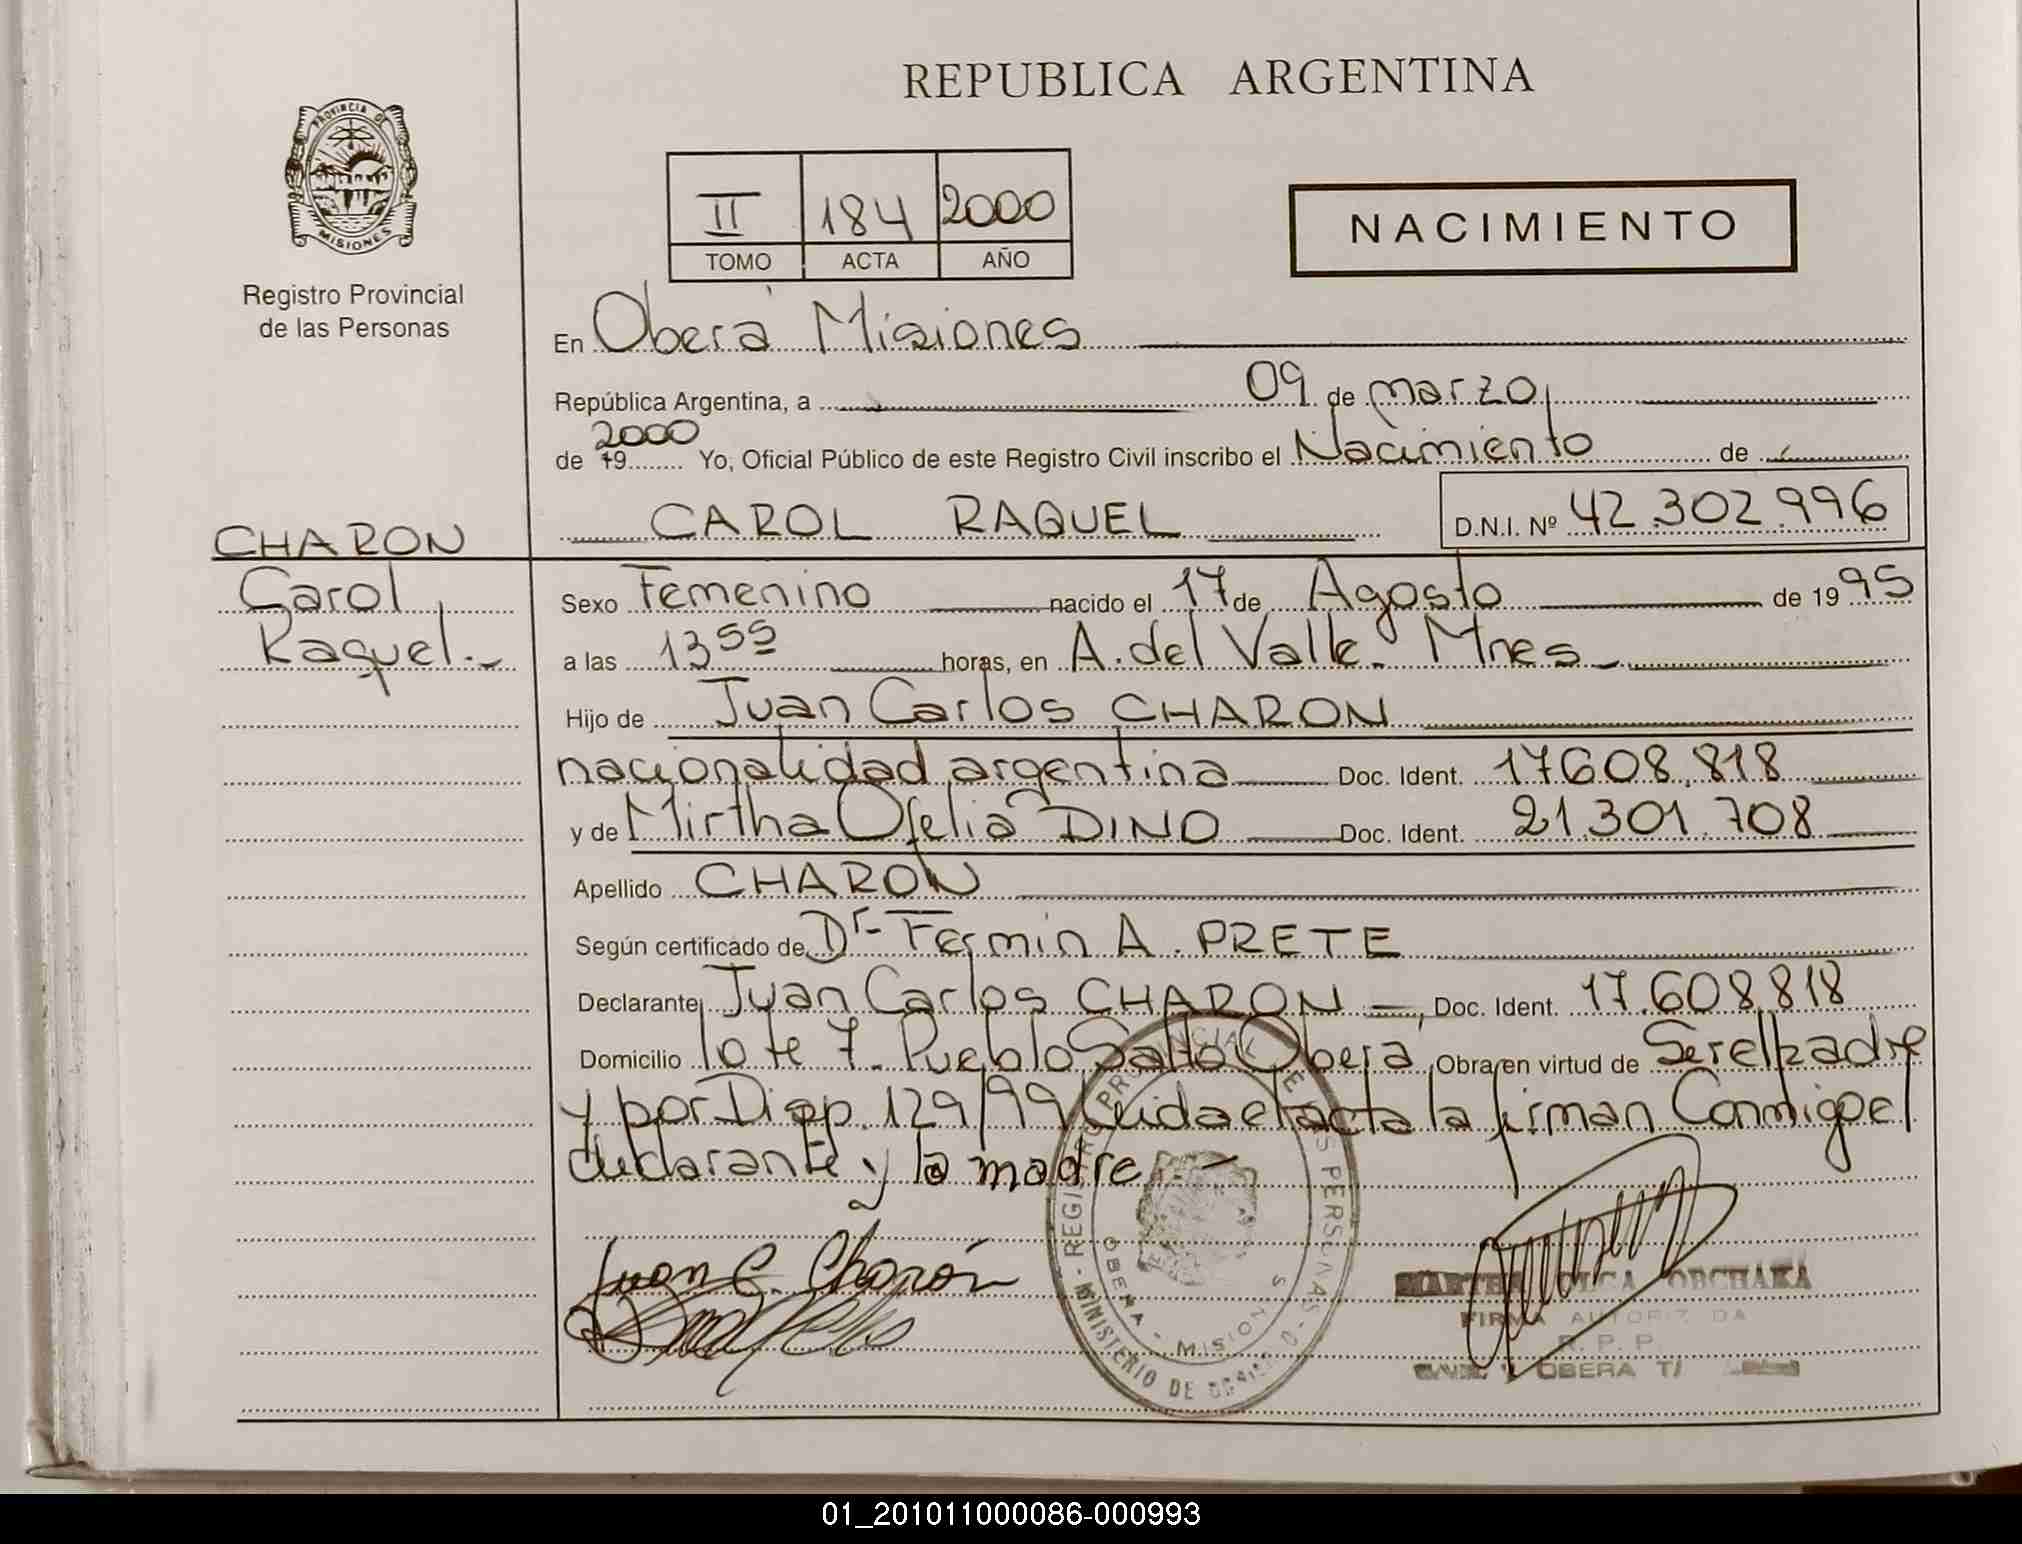 REPUBLICA ARGENTINA
PROVINCIA DE
MISIONES
Registro Provincial
de las Personas
II 184 2000
TOMO ACTA AÑO
NACIMIENTO
En Oberá Misiones
República Argentina, a 09 de marzo
2000
de 19 Yo, Oficial Público de este Registro Civil inscribo el Nacimiento de
CAROL RAQUEL D.N.I. Nº 42.302.996
CHARON
Carol
Raquel.-
Sexo Femenino nacido el 17 de Agosto de 1995
a las 13 55 horas, en A. del Valle. Mnes
Hijo de Juan Carlos CHARON
nacionalidad argentina Doc. Ident. 17.608.818
y de Mirtha Ofelia DINO Doc. Ident. 21.301.708
Apellido CHARON
Según certificado de Dr. Fermin A. PRETE
Declarante Juan Carlos CHARON, Doc. Ident. 17.608.818
Domicilio lote 7 Pueblo Salto Oberá, Obra en virtud de Ser el Padre
y por Disp. 129/99 Leida el acta la firman Conmigo el
declarante y la madre.-
Juan C. Charón
REGISTRO PROVINCIAL DE LAS PERSONAS - MINISTERIO DE
OBERA - MISIONES
MARTHA OLGA OBCHAKA
FIRMA AUTORIZADA
R.P.P.
OBERA
01_201011000086-000993